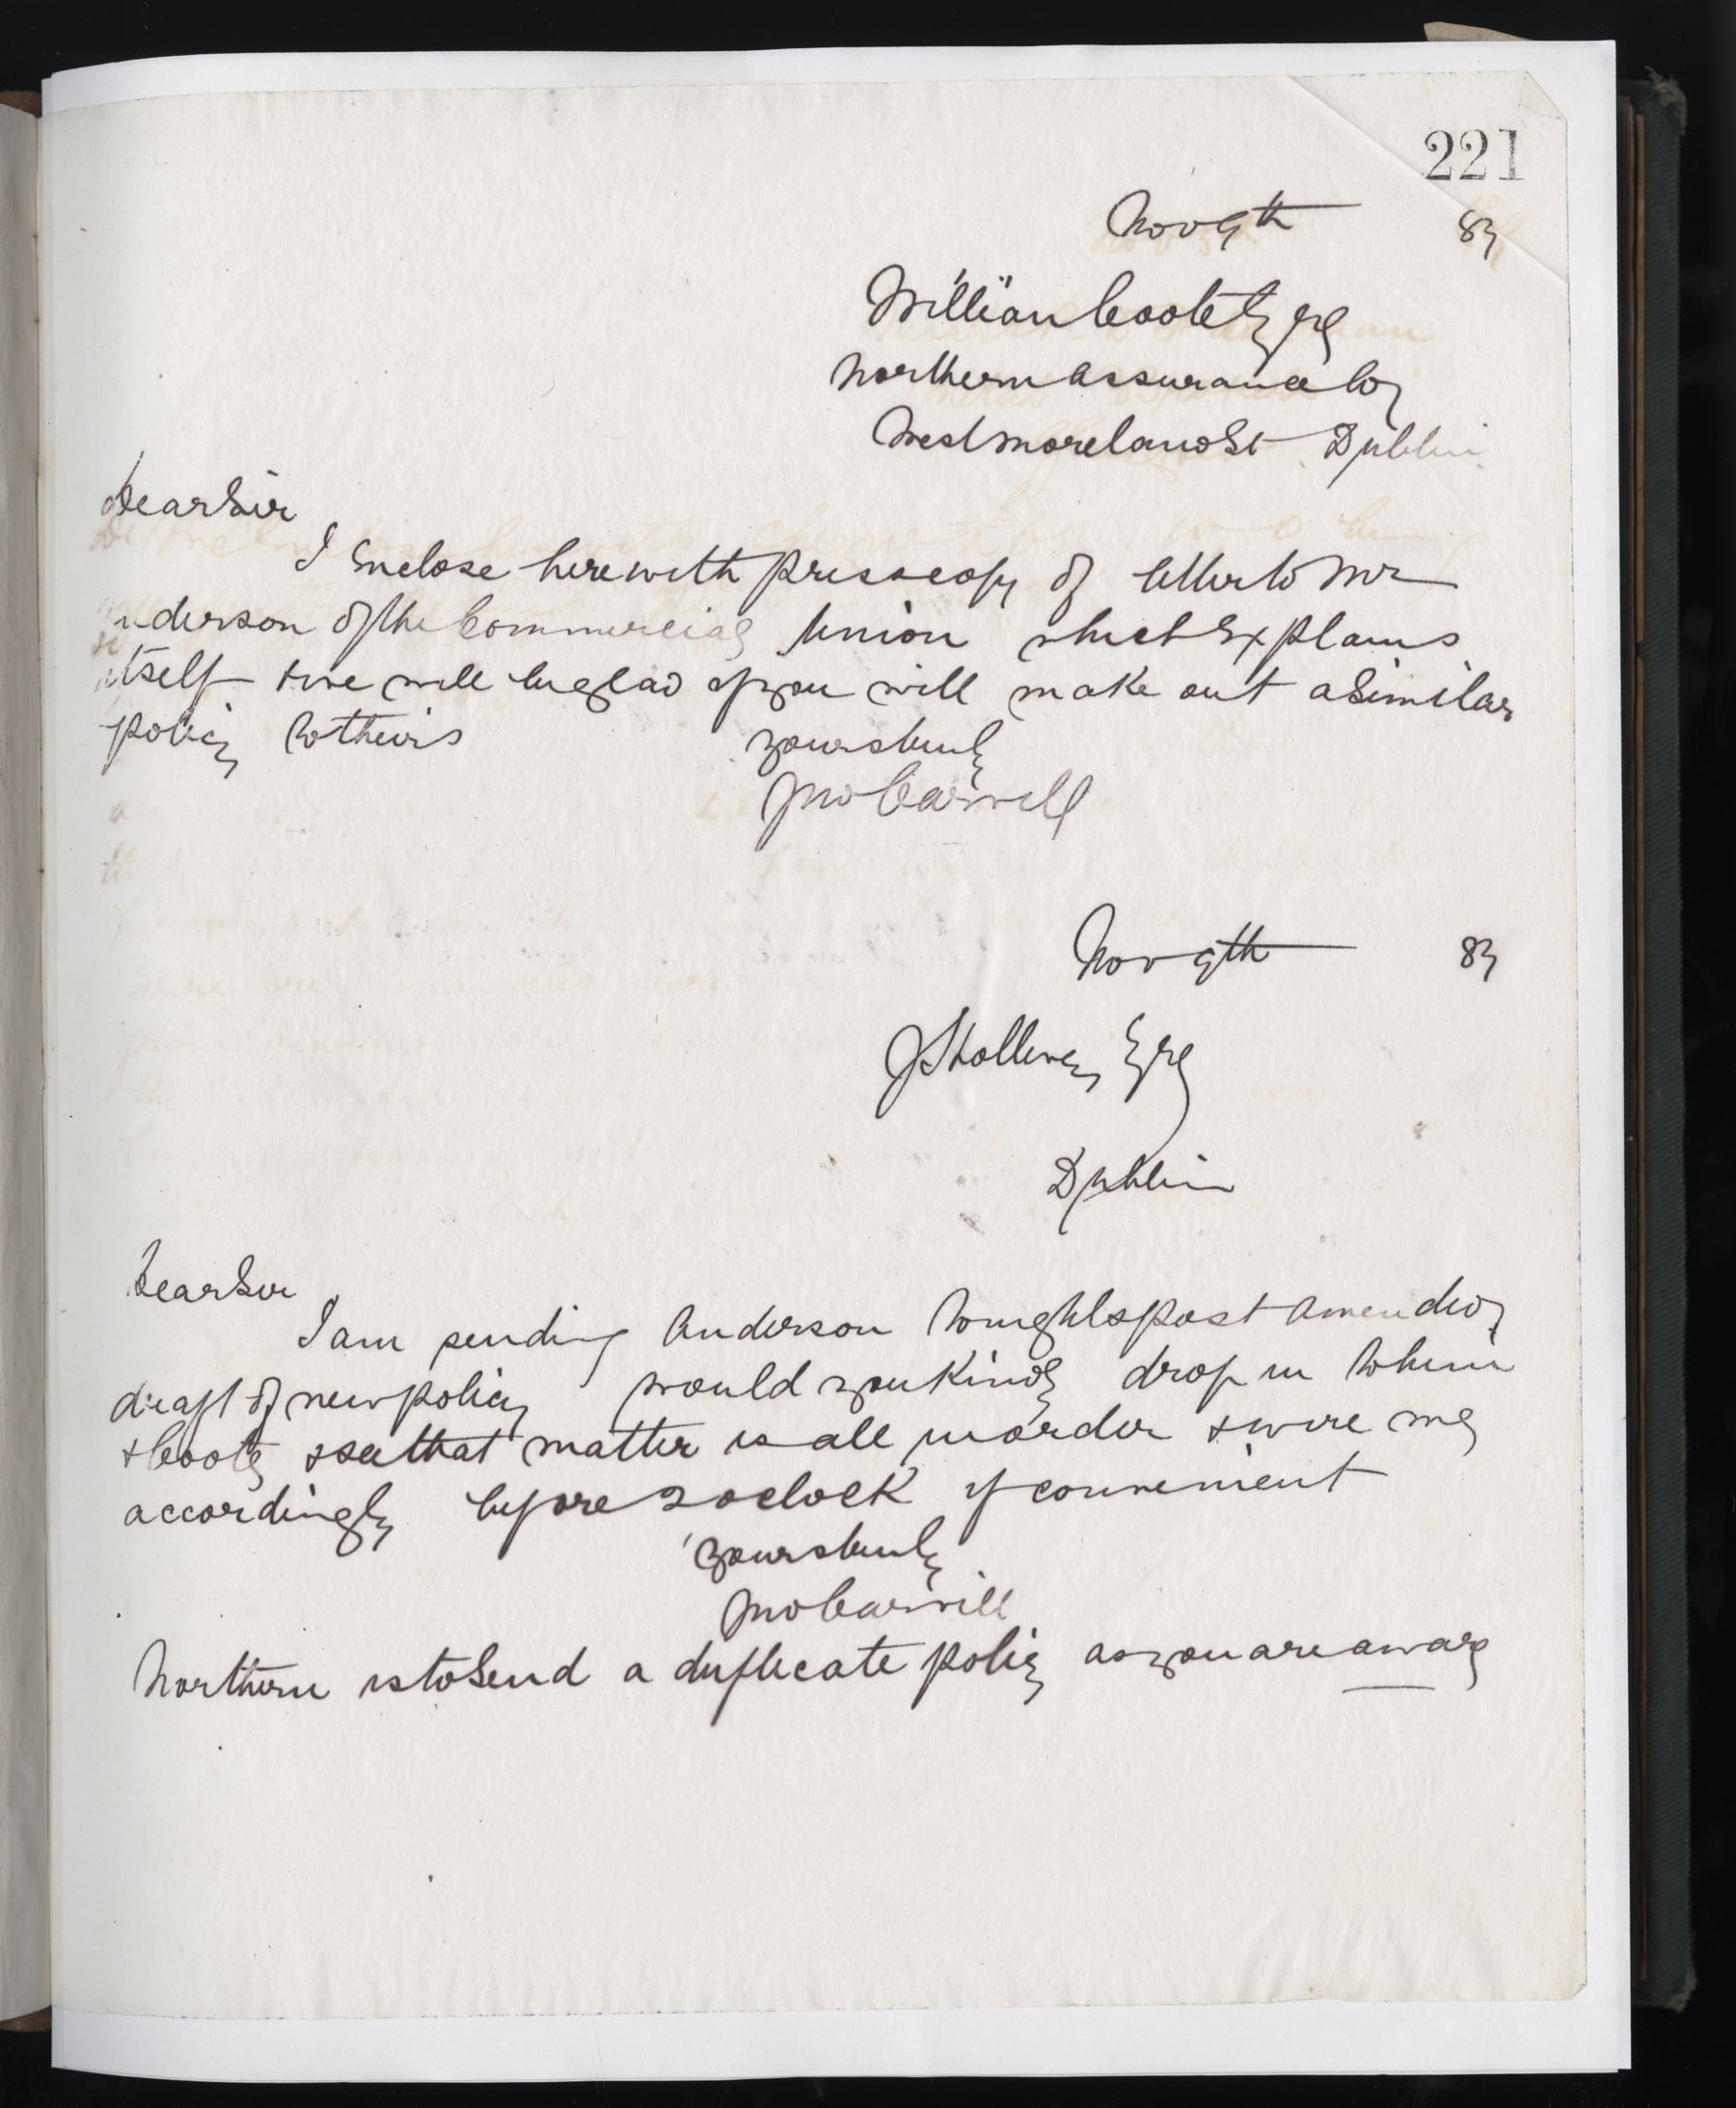 221
Nov 9th 83
William Coote Esq
Northern Assurance Coy
Westmoreland St Dublin
Dear Sir
I Enclose herewith press copy of letter to Mr
Anderson of the Commercial Union which Explains
itself & we will be glad if you will make out a Similar
policy to theirs
yours truly
Jno Carvill
Nov 9th 83
J Hollwey Esq
Dublin
Dear Sir
I am sending Anderson to nights post amended
draft of new policy would you kindly drop in to him
& Coote & see that matter is all in order & wire me
accordingly before 2 oclock if convenient
yours truly
Jno Carvill
Northern is to Send a duplicate policy as you are aware